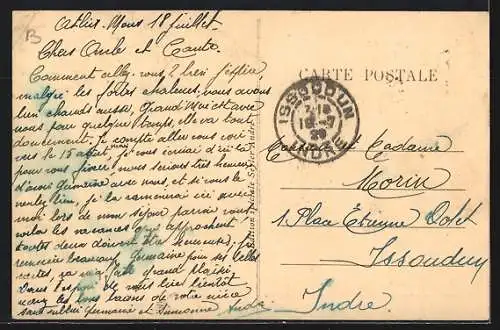 B
18 juillet
Cher Oncle et Tante
Comment allez-vous ? bien j'espère
malgré les fortes chaleurs, nous avons
bien chauds aussi, Grand'mère est avec
nous pour quelques temps, elle va tout
doucement. Je compte aller vous voir
vers le 15 août, je vous écrirai d'ici là
pour vous fixer, nous serions très heureux
d'avoir Germaine avec nous, et si vous le
voulez bien, je la ramènerai ici avec
moi lors de mon séjour parmi vous,
voilà les vacances qui approchent
toutes deux doivent être heureuses, je
remercie beaucoup Germaine pour ses belles
cartes, ça m'a fait grand plaisir
Dans l'espoir de vous lire bientôt
recevez les bons baisers de votre nièce
sans oublier Germaine et Simonne
CARTE POSTALE
ISSOUDUN
INDRE
Monsieur et Madame
Morin
1, Place Etienne Dolet
Issoudun
Indre